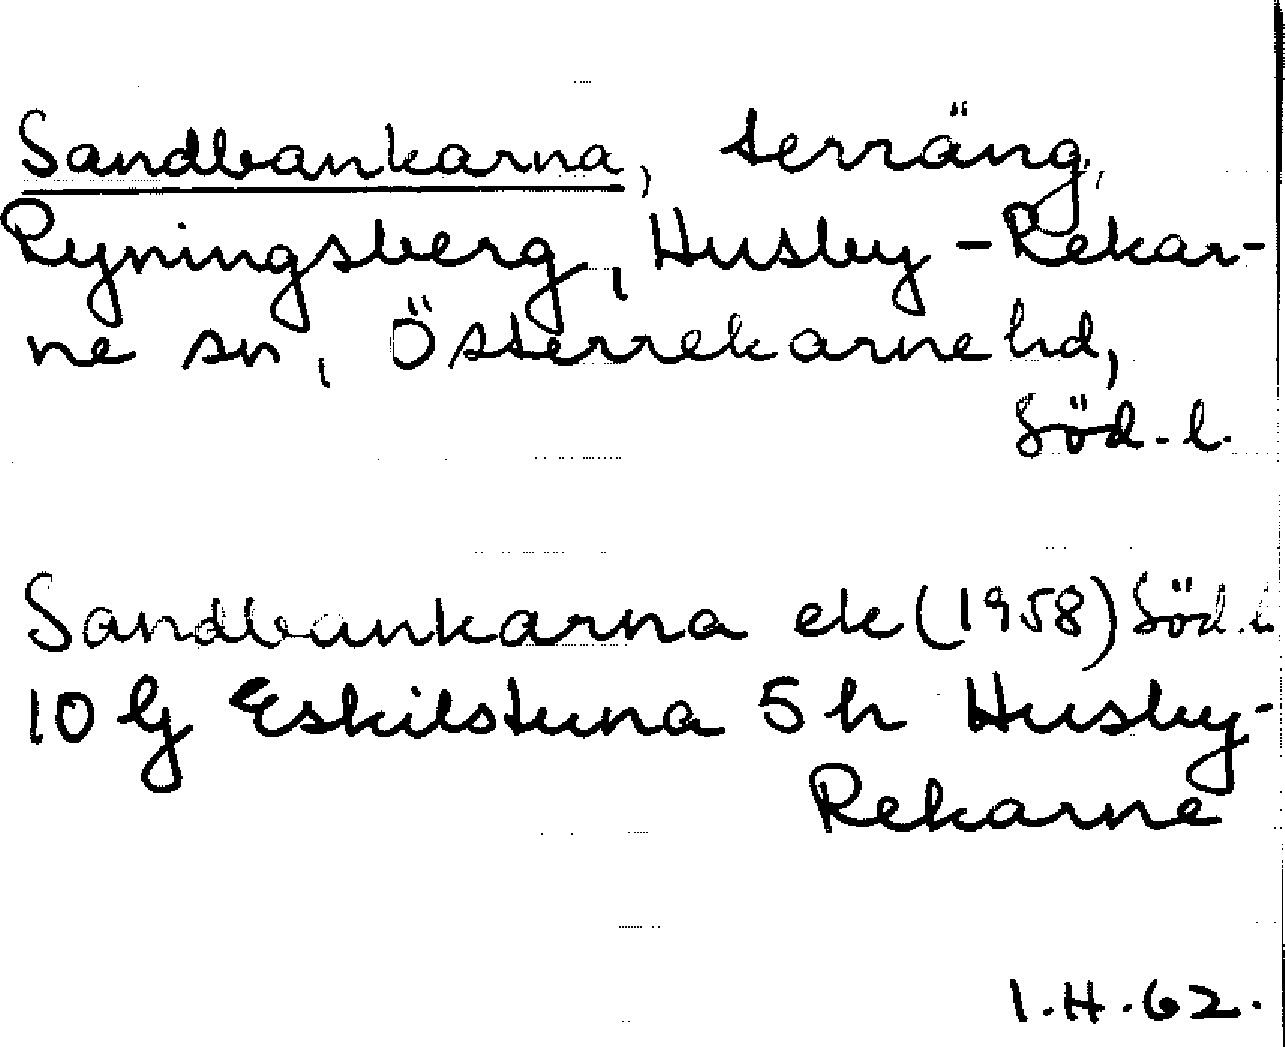 Sandbankarna, terräng,
Ryningsberg, Husby-Rekar-
ne sn, Österrekarne hd,
Söd. l.
Sandbankarna ek (1958) Söd. l.
10 G Eskilstuna 5 h Husby-
Rekarne
I.H.62.